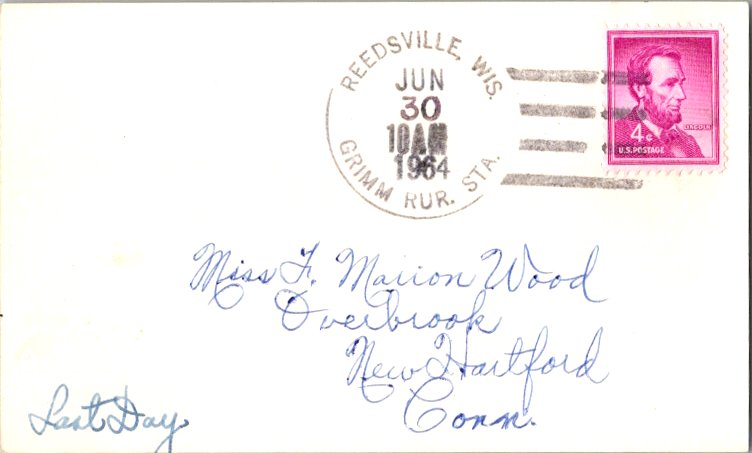 REEDSVILLE, WIS.
JUN
30
10AM
1964
GRIMM RUR. STA.
LINCOLN
4¢
U.S. POSTAGE
Miss F. Marion Wood
Overbrook
New Hartford
Conn.
Last Day